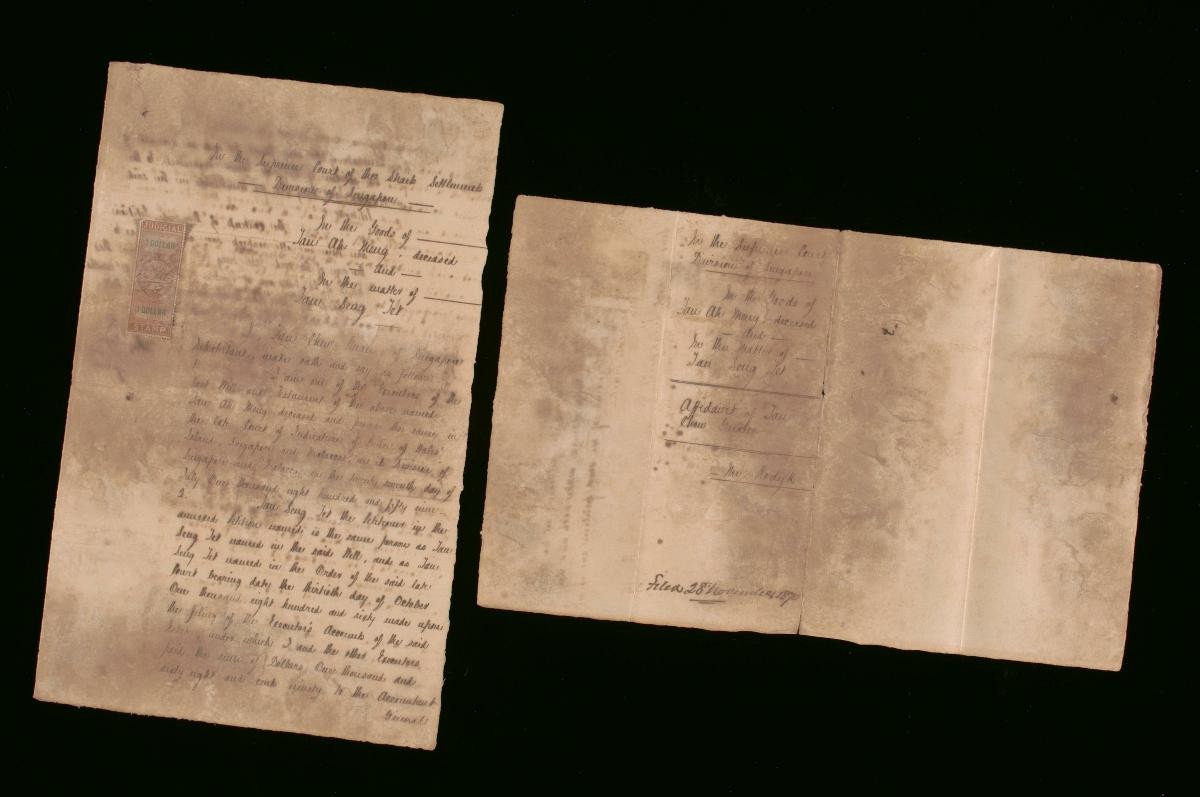 In the Supreme Court of the Straits Settlements
Division of Singapore
In the Goods of
Tan Ah Mong, deceased
And
In the matter of
Tan Seng Jet
JUDICIAL
1 DOLLAR
1 DOLLAR
STAMP
I Tan Chow of Singapore
Inhabitant, make oath and say as follows
1. I am one of the Executors of the
last Will and Testament of the above named
Tan Ah Mong deceased and prove the same in
the late Court of Judicature of Prince of Wales'
Island, Singapore and Malacca, at the Division of
Singapore and Malacca on the twenty seventh day of
July One thousand eight hundred and fifty nine
2. Tan Seng Jet the Petitioner in the
annexed Petition named is the same person as Tan
Seng Jet named in the said Will, and as Tan
Seng Jet named in the Order of the said late
Court bearing date the thirtieth day of October
One thousand eight hundred and sixty made upon
the filing of the Executor's Account of the said
under which I and the other Executors
paid the sum of Dollars One thousand and
sixty eight and cents ninety to the Accountant
General
In the Supreme Court
Division of Singapore
In the Goods of
Tan Ah Mong, deceased
And
In the Matter of
Tan Seng Jet
Affidavit of Tan
Chow
Mr. Rodyk
Filed 28 November